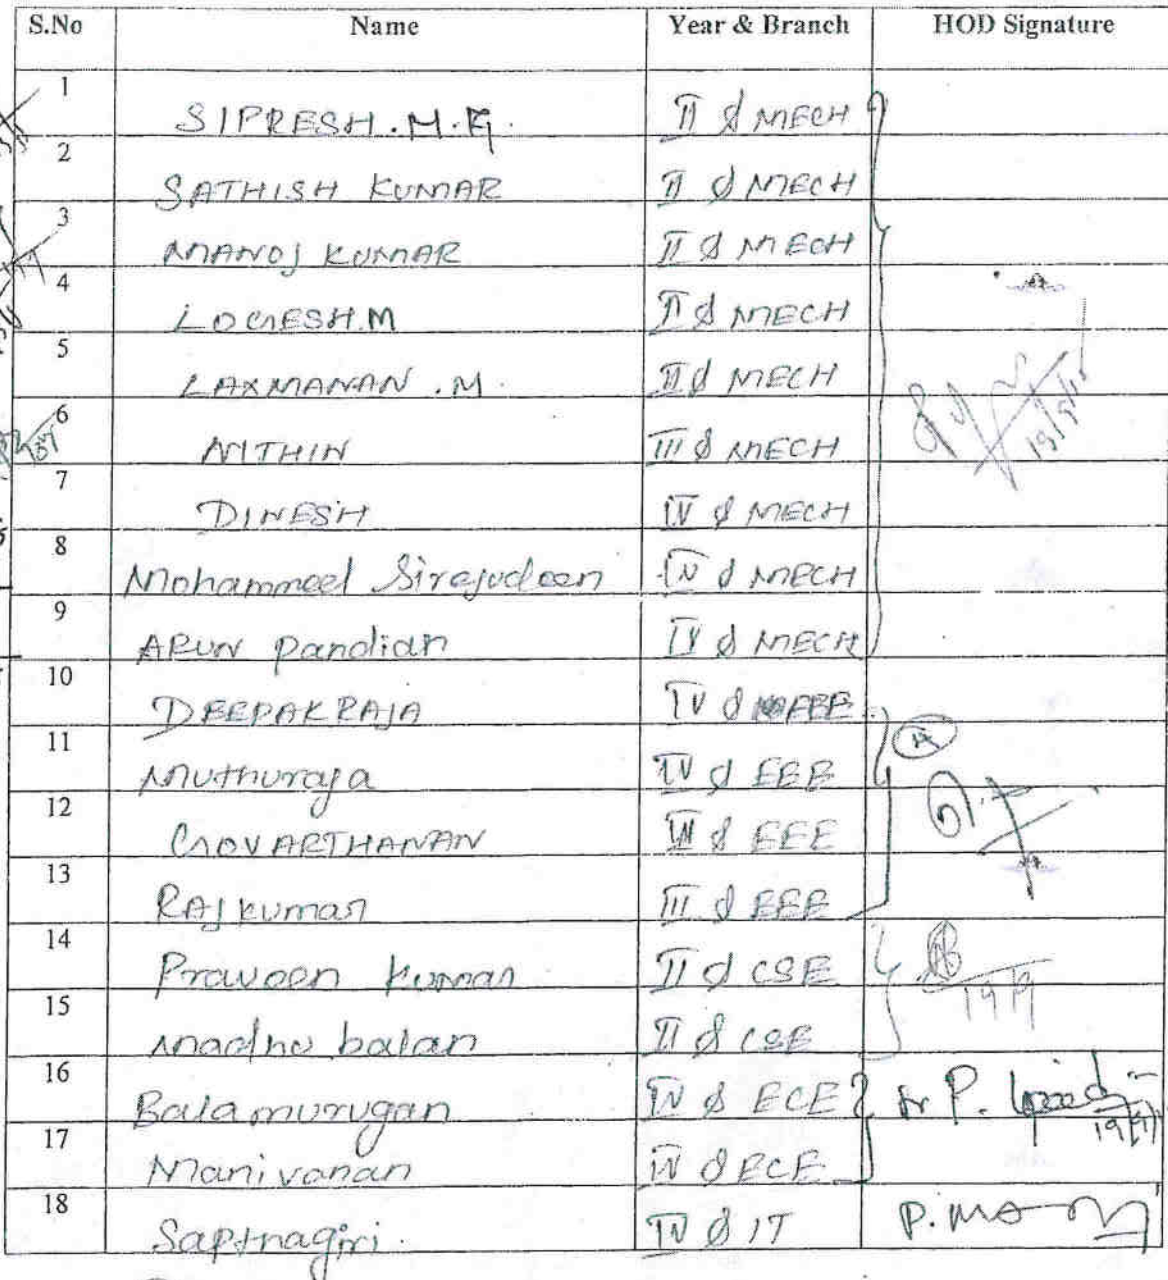 S.No Name Year & Branch HOD Signature
1 SIPRESH.M.G. II & MECH
2 SATHISH KUMAR II & MECH
3 MANOJ KUMAR II & MECH
4 LOGESH.M II & MECH
5 LAXMANAN.M. II & MECH
6 NITHIN III & MECH
7 DINESH IV & MECH
8 Mohammed Sirajudeen IV & MECH
9 ARUN Pandian IV & MECH
10 DEEPAKRAJA IV & EEE
11 Muthuraja IV & EEE
12 GOVARTHANAN & EEE
13 RAJkumar III & EEE
14 Praveen kumar II & CSE 19/9
15 madhu balan II & CSE
16 Balamurugan IV & ECE P. 19/9
17 Manivanan IV & ECE
18 Sapthagiri. IV & IT P.